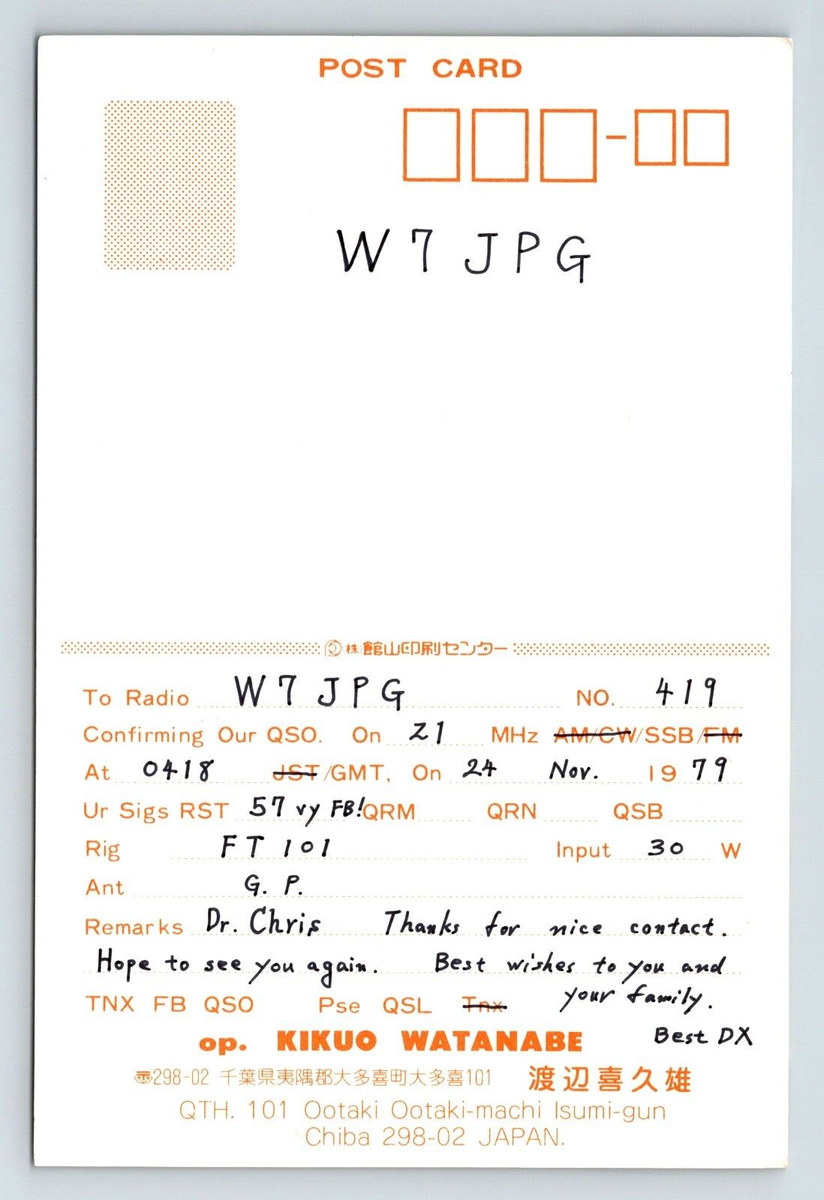 POST CARD
W7JPG
株 館山印刷センター
To Radio W7JPG NO. 419
Confirming Our QSO. On 21 MHz AM/CW/SSB/FM
At 0418 JST/GMT, On 24 Nov. 1979
Ur Sigs RST 57 vy FB! QRM QRN QSB
Rig FT 101 Input 30 W
Ant G. P.
Remarks Dr. Chris Thanks for nice contact.
Hope to see you again. Best wishes to you and
your family.
TNX FB QSO Pse QSL Tnx
Best DX
op. KIKUO WATANABE
〠298-02 千葉県夷隅郡大多喜町大多喜101 渡辺喜久雄
QTH. 101 Ootaki Ootaki-machi Isumi-gun
Chiba 298-02 JAPAN.